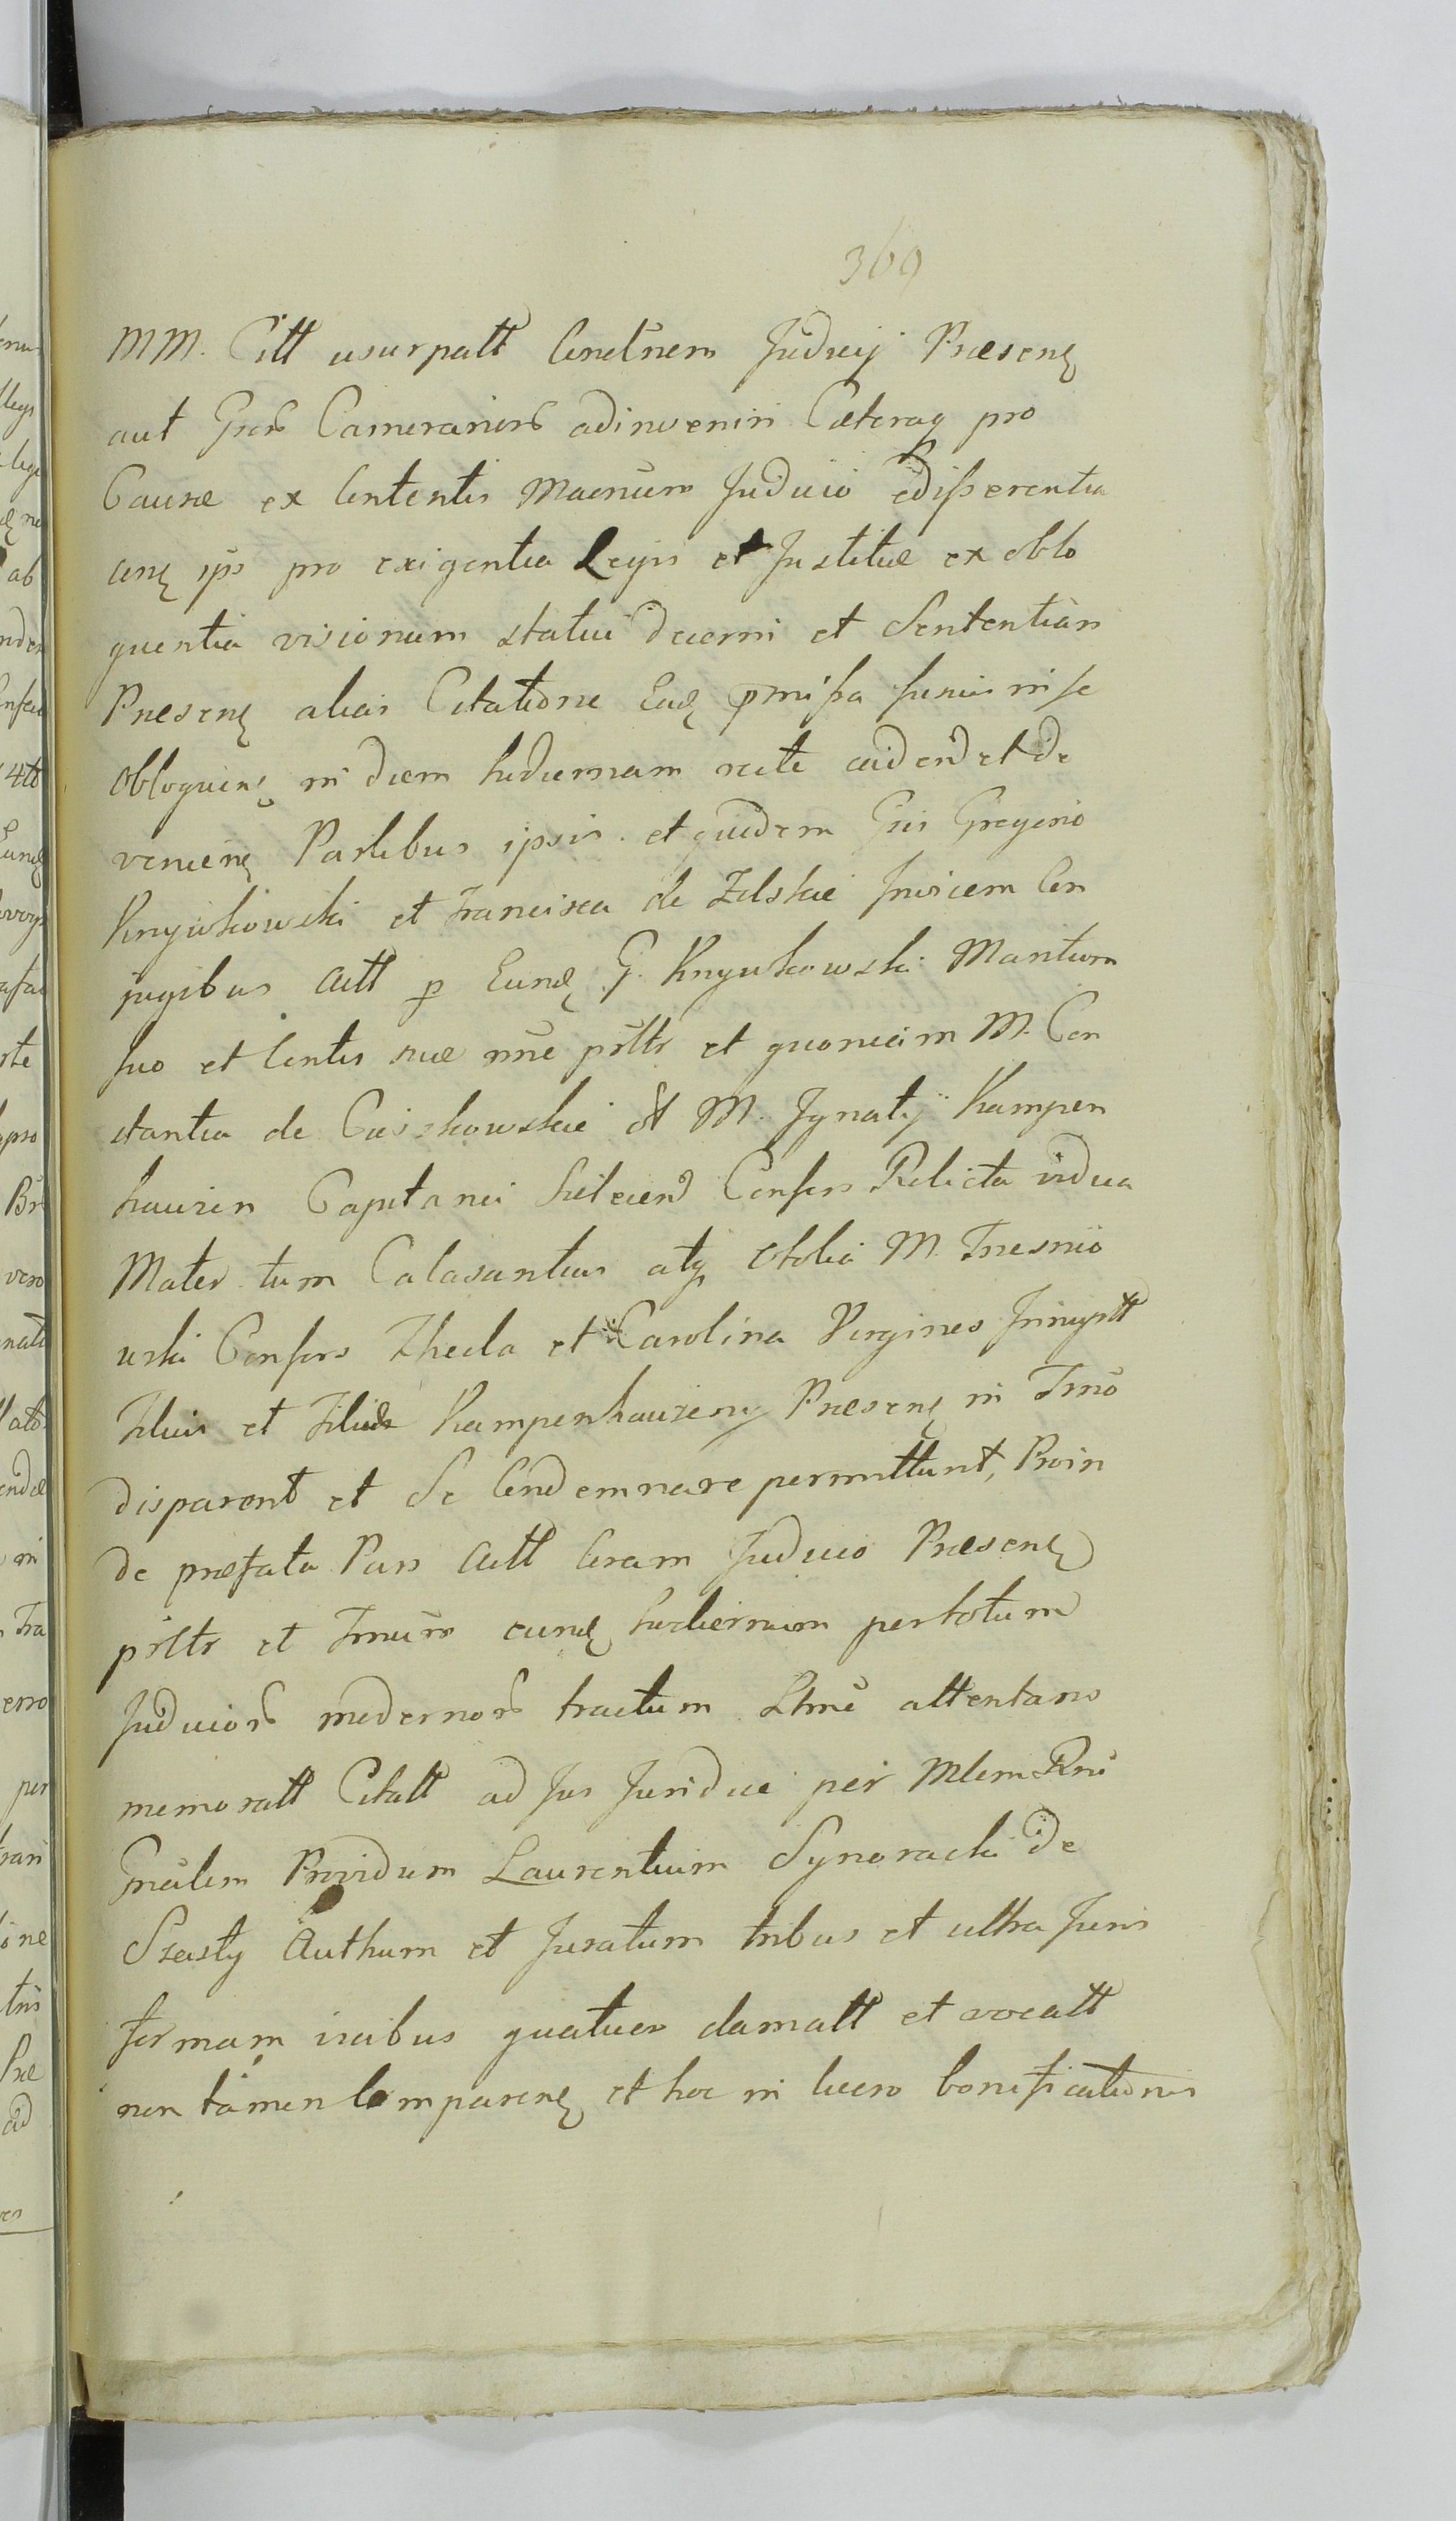 369
MM. Citt usurpatt Condnem Judicij Praesenz
aut Gnor Camerarior adinveniri Caeteraq pro
Causae ex Contentis Macnum Judicio edisserentia
cenz ips pro exigentia Legis et Justitiae ex oblo
quentia visionum statui decerni et Sententiam
Praesenz alias Citatione Eadz pmissa ferius in se
obloquenz in diem hodiernam recte caiden et de
venienz Partibus ipsis et quidem Gsis Gregorio
Knyukowski et Francisca de Zilskie Invicem Con
jugibus Actt p Eundz G. Knyukowski Maritum
suo et Contis suae nne psttr et quoniam M. Con
stantia de Cieszkowskie olt M. Ignatij Kampen
hauzen Capitanei Conssors Relicta vidua
Mater tum Calasantius atq Otolia M. Trzesnio
wski Consors Thecla et Carolina Virgines Innuptt
Filius et Filiae Kampenhauzeny Praesenz in Trno
disparent et Se Condemnare permittunt, Proin
de praefata Pars Actt Coram Judicio Praesenz
psttr et Trnum eundz hodiernum per totum
Judicior modernor tractum Ltme attentans
memoratt Citatt ad Jus Juridice per Mlem Rni
Gnalem Providum Laurentium Synoracki de
Szasty Authum et Juratum tribus et ultra Juris
formam vicibus quatuor clamatt et vocatt
non tamen Comparenz et hoc in lucro bonificationis